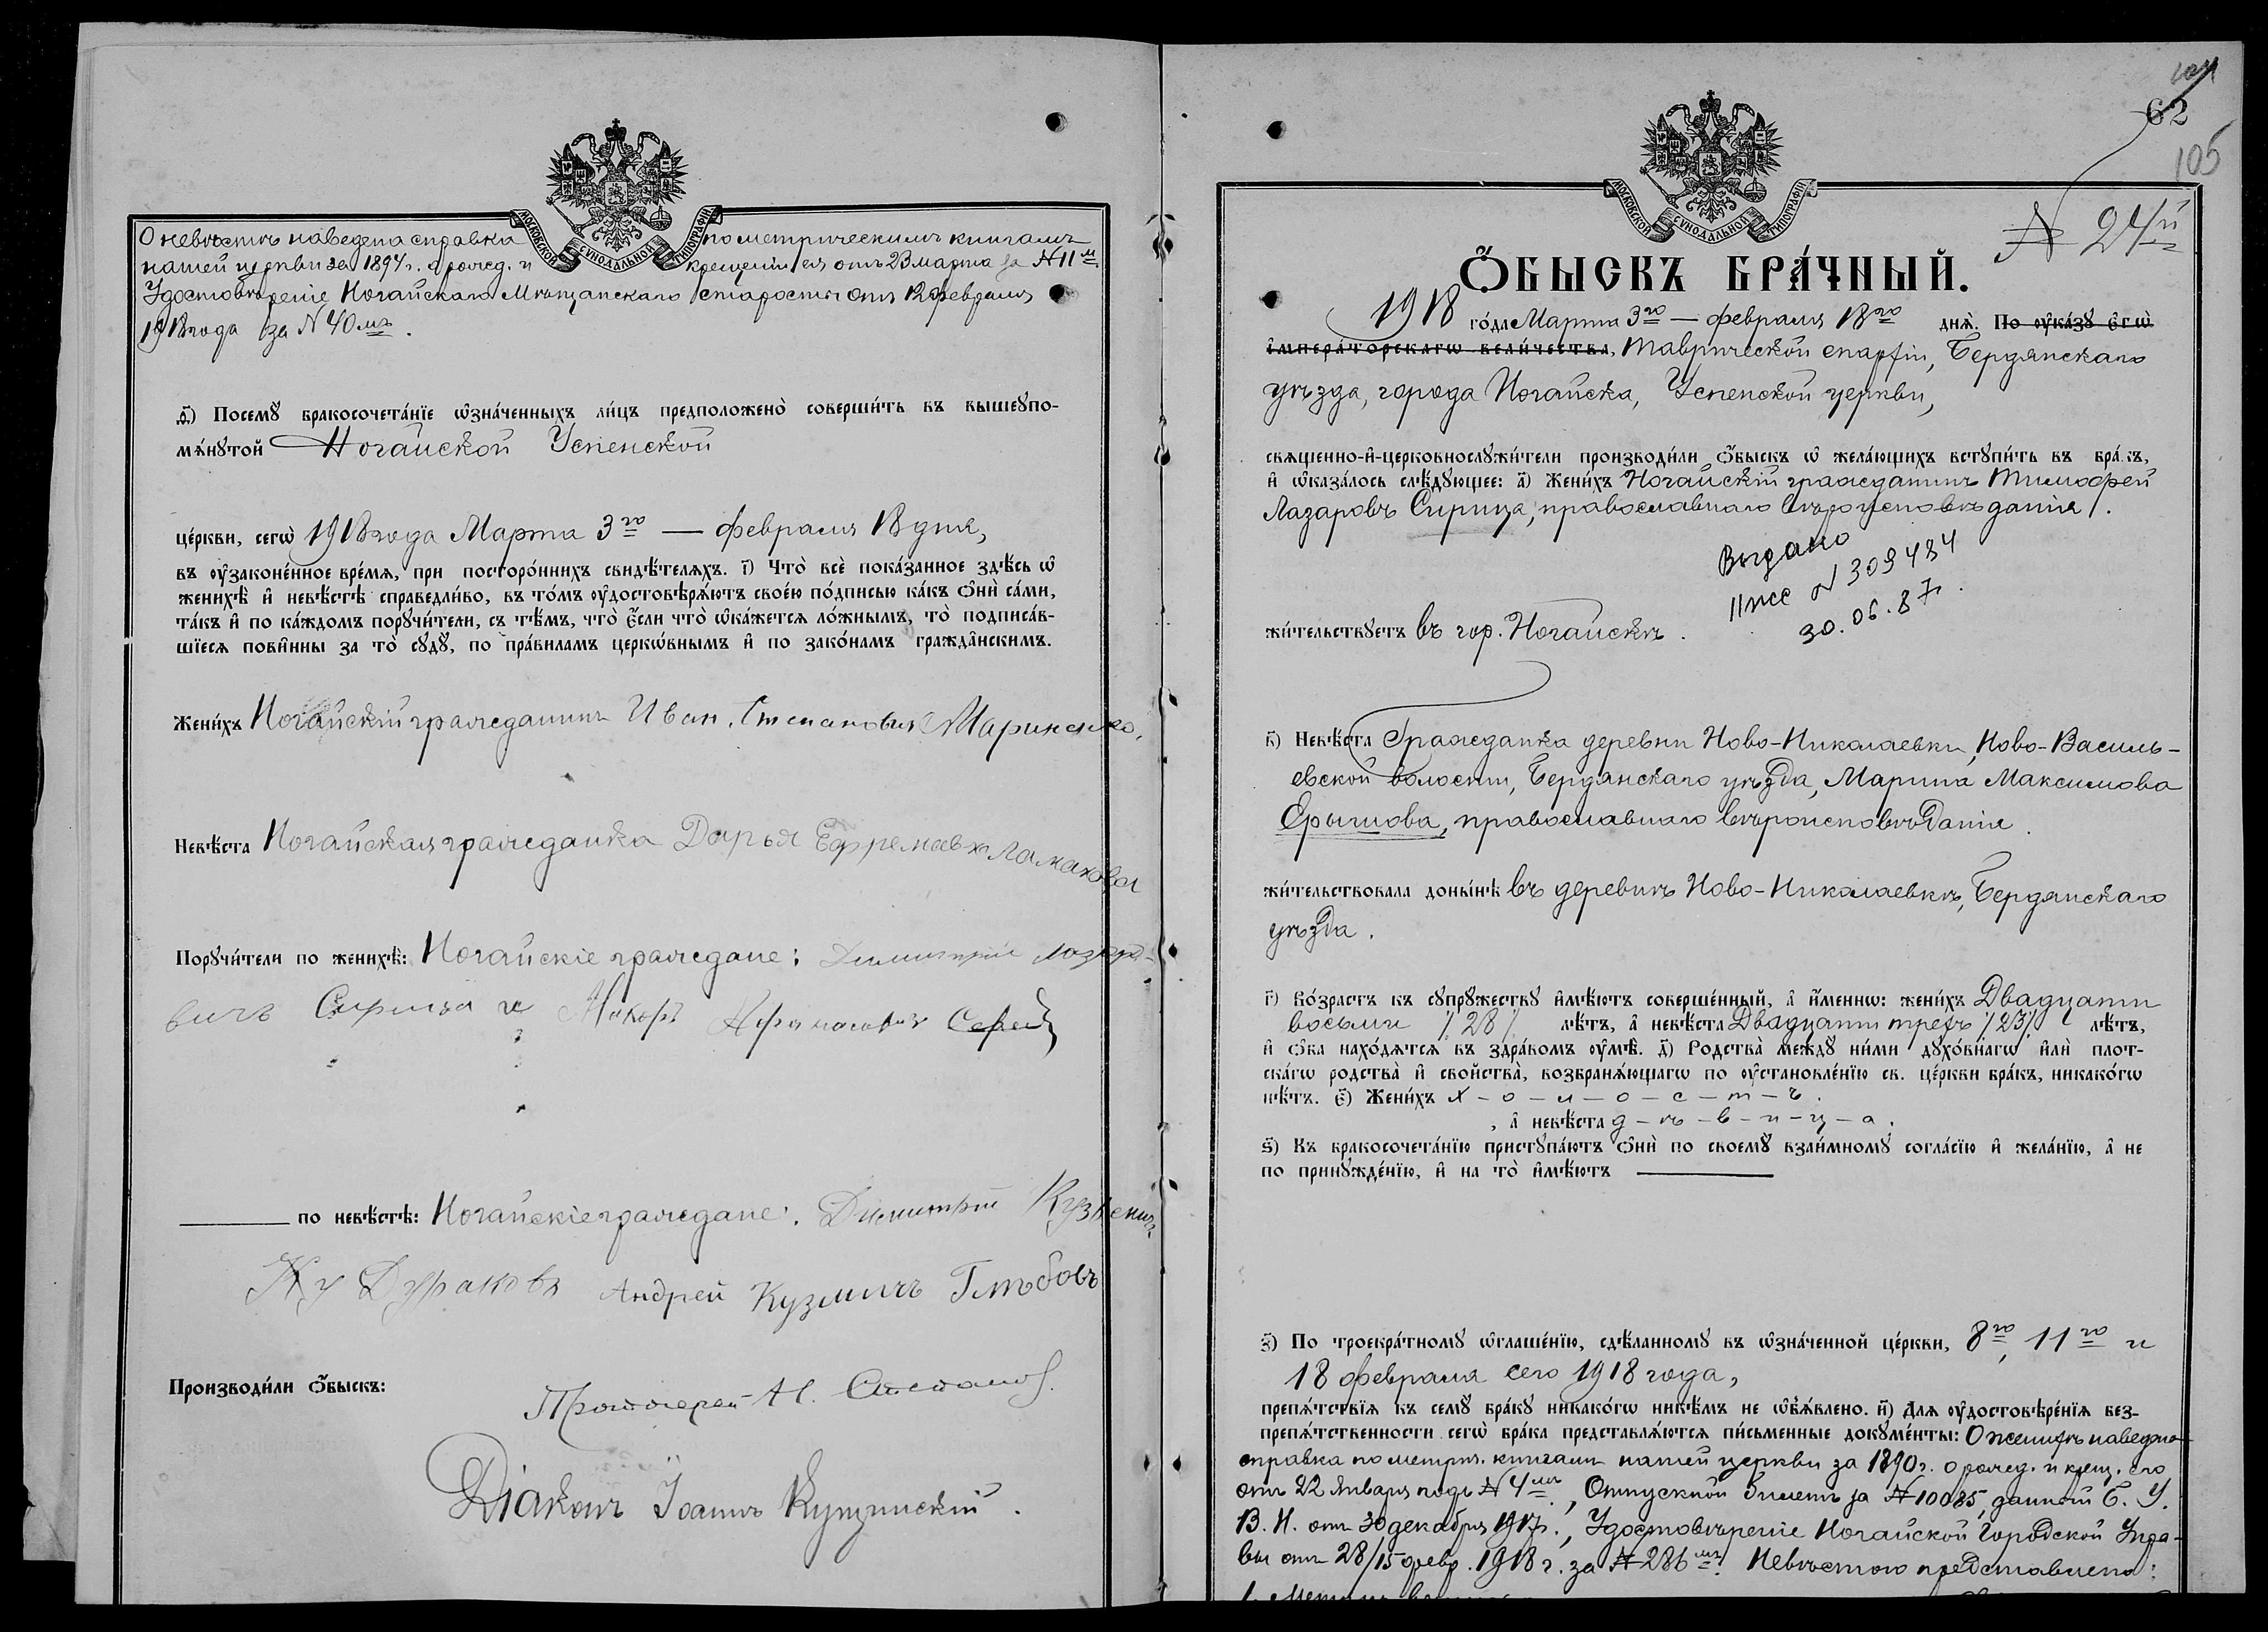 МОСКОВСКОЙ СѴНОДАЛЬНОЙ ТИПОГРАФІИ
О невѣстѣ наведена справка по метрическимъ книгамъ
нашей церкви за 1894 г. о рожд. и крещеніи ея отъ 23 марта за №11м.
Удостовѣреніе Ногайскаго Мѣщанскаго старосты отъ 12 февраля
1918 года за №40мъ.
д҃і) Посемꙋ бракосочета́нїе ѡ҆зна́ченныхъ ли́цъ предположено̀ соверши́ть въ вышеꙋпо-
мѧ́нꙋтой Ногайской Успенской
це́ркви, сегѡ̀ 1918 года Марта 3го — февраля 18 дня,
въ ᲂу҆законе́нное вре́мѧ, при посторо́ннихъ свидѣ́телѧхъ. і҃) Что̀ всѐ пока́занное здѣ́сь ѡ҆
женихѣ̀ и҆ невѣ́стѣ справедли́во, въ то́мъ ᲂу҆достовѣрѧ́ютъ свое́ю по́дписью ка́къ ѻ҆нѝ са́ми,
та́къ и҆ по ка́ждомъ порꙋчи́тели, съ тѣ́мъ, что̀ є҆́сли что̀ ѡ҆ка́жетсѧ ло́жнымъ, то̀ подписа́в-
шїесѧ пови́нны за то̀ сꙋдꙋ̀, по пра́виламъ церкѡ́внымъ и҆ по зако́намъ гражда̂нскимъ.
Жени́хъ Ногайскій гражданинъ Иван. Степановичъ Мариненко.
Невѣ́ста Ногайская гражданка Дарья Ефремовна Ламахова
Порꙋчи́тели по женихѣ̀: Ногайскіе граждане: Димитрій Лазаре-
вичъ Сирица и Макаръ Афанасовичъ
по невѣ́стѣ: Ногайскіе граждане: Димитрій Кузьмич
Андрей Кузмичъ Глѣбовъ
Производи́ли ѻ҆́быскъ: Протоіерей Н.
Діаконъ Іоаннъ
104
62
105
МОСКОВСКОЙ СѴНОДАЛЬНОЙ ТИПОГРАФІИ
№ 24й
Ѻ҆́БЫСКЪ БРА́ЧНЫЙ.
1918 го́да Марта 3го — февраля 18го днѧ̀. По ᲂу҆ка́зꙋ є҆гѡ̀
і҆мпера́торскагѡ вели́чества, Таврической епархіи, Бердянскаго
уѣзда, города Ногайска, Успенской церкви,
свѧщенно-и҆-церковнослꙋжи́тели производи́ли ѻ҆́быскъ ѡ҆ жела́ющихъ встꙋпи́ть въ бра́къ,
и҆ ѡ҆каза́лось слѣ́дꙋющее: а҃) Жени́хъ Ногайскій гражданинъ Тимофей
Лазаровъ Сирица, православнаго вѣроисповѣданія.
Выдано
II № 309484
30.06.87.
жи́тельствꙋетъ въ гор. Ногайскѣ.
в҃) Невѣ́ста Гражданка деревни Ново-Николаевки, Ново-Василь-
евской волости, Бердянскаго уѣзда, Марина Максимова
Ерышова, православнаго вѣроисповѣданія.
жи́тельствовала доны́нѣ въ деревнѣ Ново-Николаевкѣ, Бердянскаго
уѣзда.
г҃) Во́зрастъ къ сꙋпрꙋ́жествꙋ и҆мѣ́ютъ соверше́нный, а҆ и҆́меннѡ: жени́хъ Двадцати
восьми /28/ лѣ́тъ, а҆ невѣ́ста Двадцати трехъ /23/ лѣ́тъ,
и҆ ѻ҆́ба нахо́дѧтсѧ въ здра́вомъ ᲂу҆мѣ̀. д҃) Родства̀ междꙋ̀ ни́ми дꙋхо́внагѡ и҆лѝ плот-
ска́гѡ родства̀ и҆ свойства̀, возбранѧ́ющагѡ по ᲂу҆становле́нїю св. це́ркви бра́къ, никако́гѡ
нѣ́тъ. є҃) Жени́хъ х-о-л-о-с-т-ъ.
, а҆ невѣ́ста д-ѣ-в-и-ц-а.
ѕ҃) Къ бракосочета́нїю пристꙋпа́ютъ ѻ҆нѝ по своемꙋ̀ взаи́мномꙋ согла́сїю и҆ жела́нїю, а҆ не
по принꙋжде́нїю, и҆ на то̀ и҆мѣ́ютъ
з҃) По троекра́тномꙋ ѡ҆глаше́нїю, сдѣ́ланномꙋ въ ѡ҆зна́ченной це́ркви, 8го, 11го и
18 февраля сего 1918 года,
препѧ́тствїѧ къ семꙋ̀ бра́кꙋ никако́гѡ никѣ́мъ не ѡ҆б̾ѧ́влено. и҃) Длѧ ᲂу҆достовѣре́нїѧ без-
препѧ́тственности сегѡ̀ бра́ка представлѧ́ютсѧ пи́сьменные докꙋме́нты: О женихѣ наведена
справка по метрич. книгамъ нашей церкви за 1890 г. о рожд. и крещ. его
отъ 22 Января подъ №4мъ, Отпускной билетъ за №10085, данный Б. У.
В. Н. отъ 30 декабря 1917 г., Удостовѣреніе Ногайской Городской Упра-
вы отъ 28/15 февр. 1918 г. за №286мъ. Невѣстою представлена: